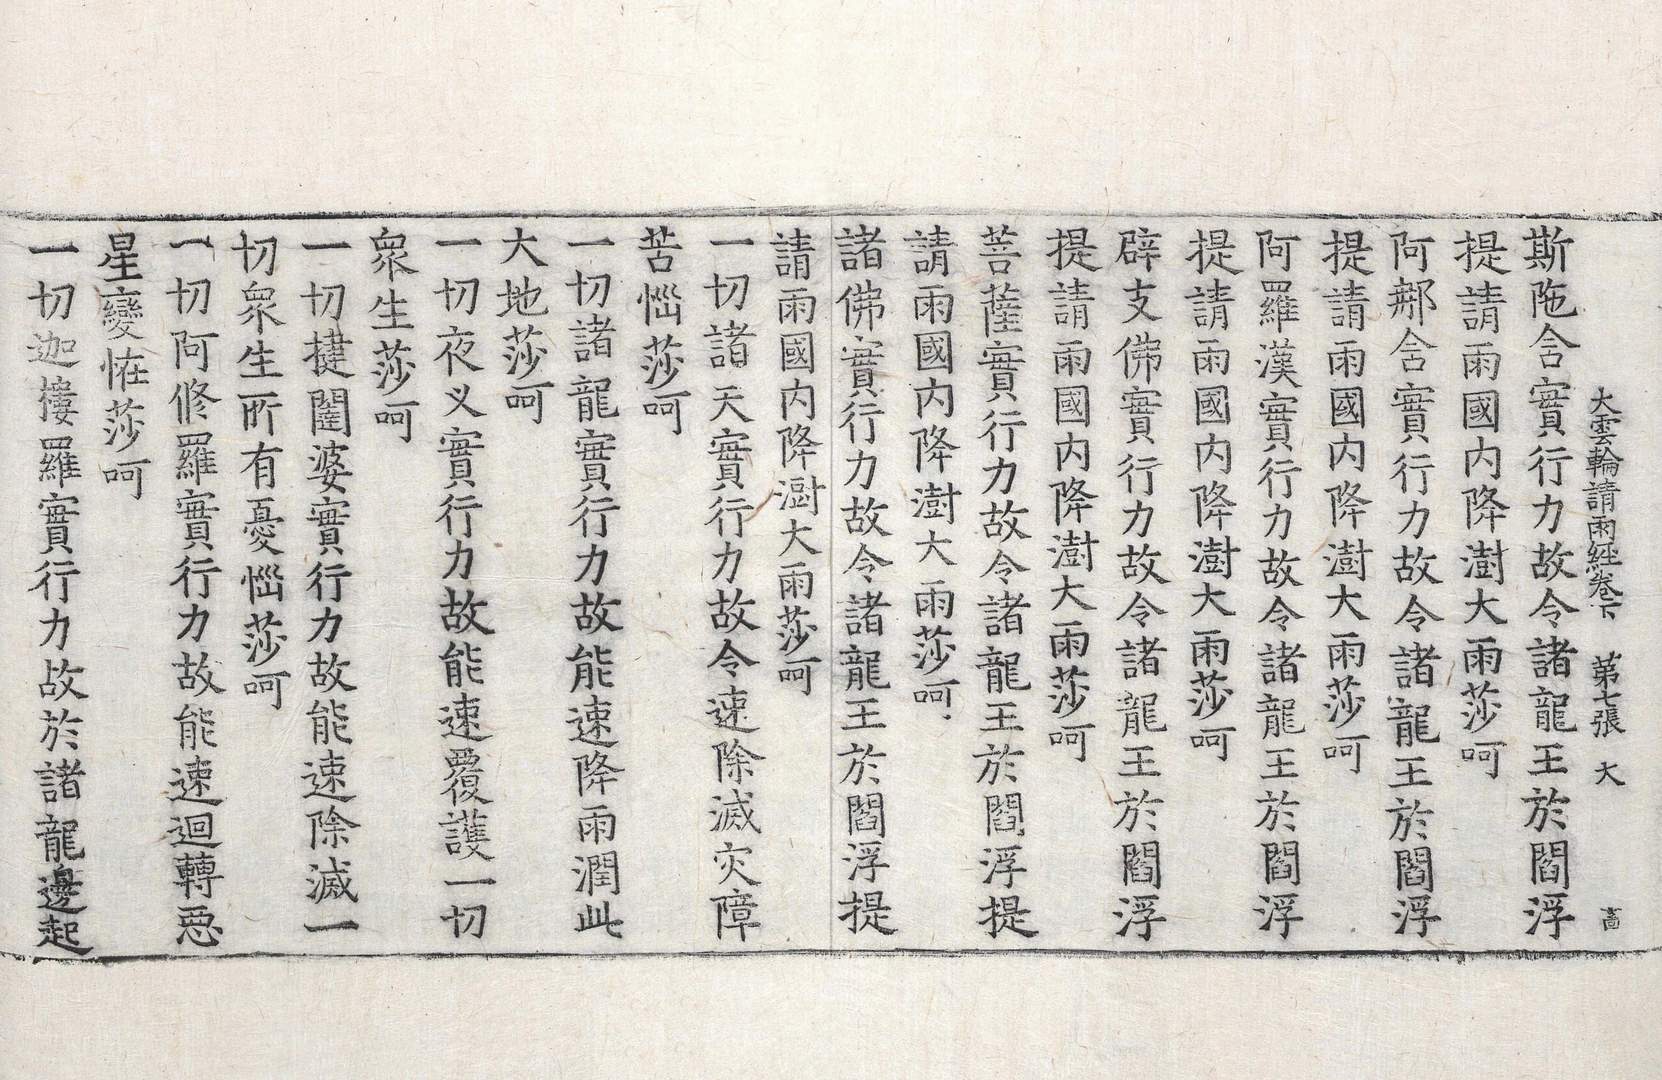 大雲輪請雨經卷下　第七張　大
斯陁含實行力故令諸龍王於閻浮
提請雨國内降澍大雨莎呵
阿那含實行力故令諸龍王於閻浮
提請雨國内降澍大雨莎呵
阿羅漢實行力故令諸龍王於閻浮
提請雨國内降澍大雨莎呵
辟支佛實行力故令諸龍王於閻浮
提請雨國内降澍大雨莎呵
菩薩實行力故令諸龍王於閻浮提
請雨國内降澍大雨莎呵
諸佛實行力故令諸龍王於閻浮提
請雨國内降澍大雨莎呵
一切諸天實行力故令速除滅灾障
苦惱莎呵
一切諸龍實行力故能速降雨潤此
大地莎呵
一切夜叉實行力故能速覆護一切
衆生莎呵
一切揵闥婆實行力故能速除滅一
切衆生所有憂惱莎呵
一切阿修羅實行力故能速迴轉惡
星變恠莎呵
一切迦樓羅實行力故於諸龍邊起